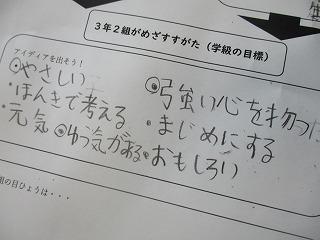 3年2組がめざすすがた(学級の目標)
アイディアを出そう!
やさしい
・ほんきで考える
・元気 ゆう気がある
強い心を持つ
・まじめにする
・おもしろい
組の目ひょうは・・・